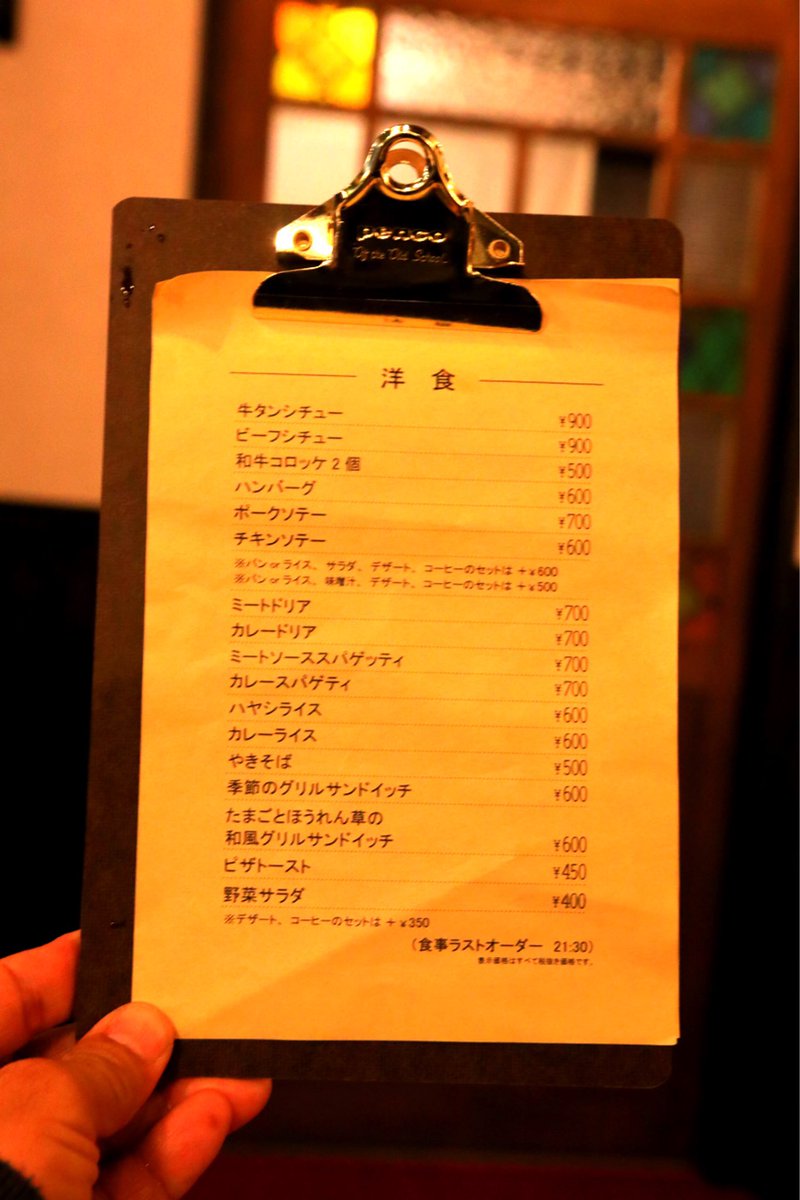 penco
Of the Old School.
洋 食
牛タンシチュー ¥900
ビーフシチュー ¥900
和牛コロッケ2個 ¥500
ハンバーグ ¥600
ポークソテー ¥700
チキンソテー ¥600
※パン or ライス、サラダ、デザート、コーヒーのセットは +¥600
※パン or ライス、味噌汁、デザート、コーヒーのセットは +¥500
ミートドリア ¥700
カレードリア ¥700
ミートソーススパゲッティ ¥700
カレースパゲティ ¥700
ハヤシライス ¥600
カレーライス ¥600
やきそば ¥500
季節のグリルサンドイッチ ¥600
たまごとほうれん草の
和風グリルサンドイッチ ¥600
ピザトースト ¥450
野菜サラダ ¥400
※デザート、コーヒーのセットは +¥350
(食事ラストオーダー 21:30)
表示価格はすべて税抜き価格です。